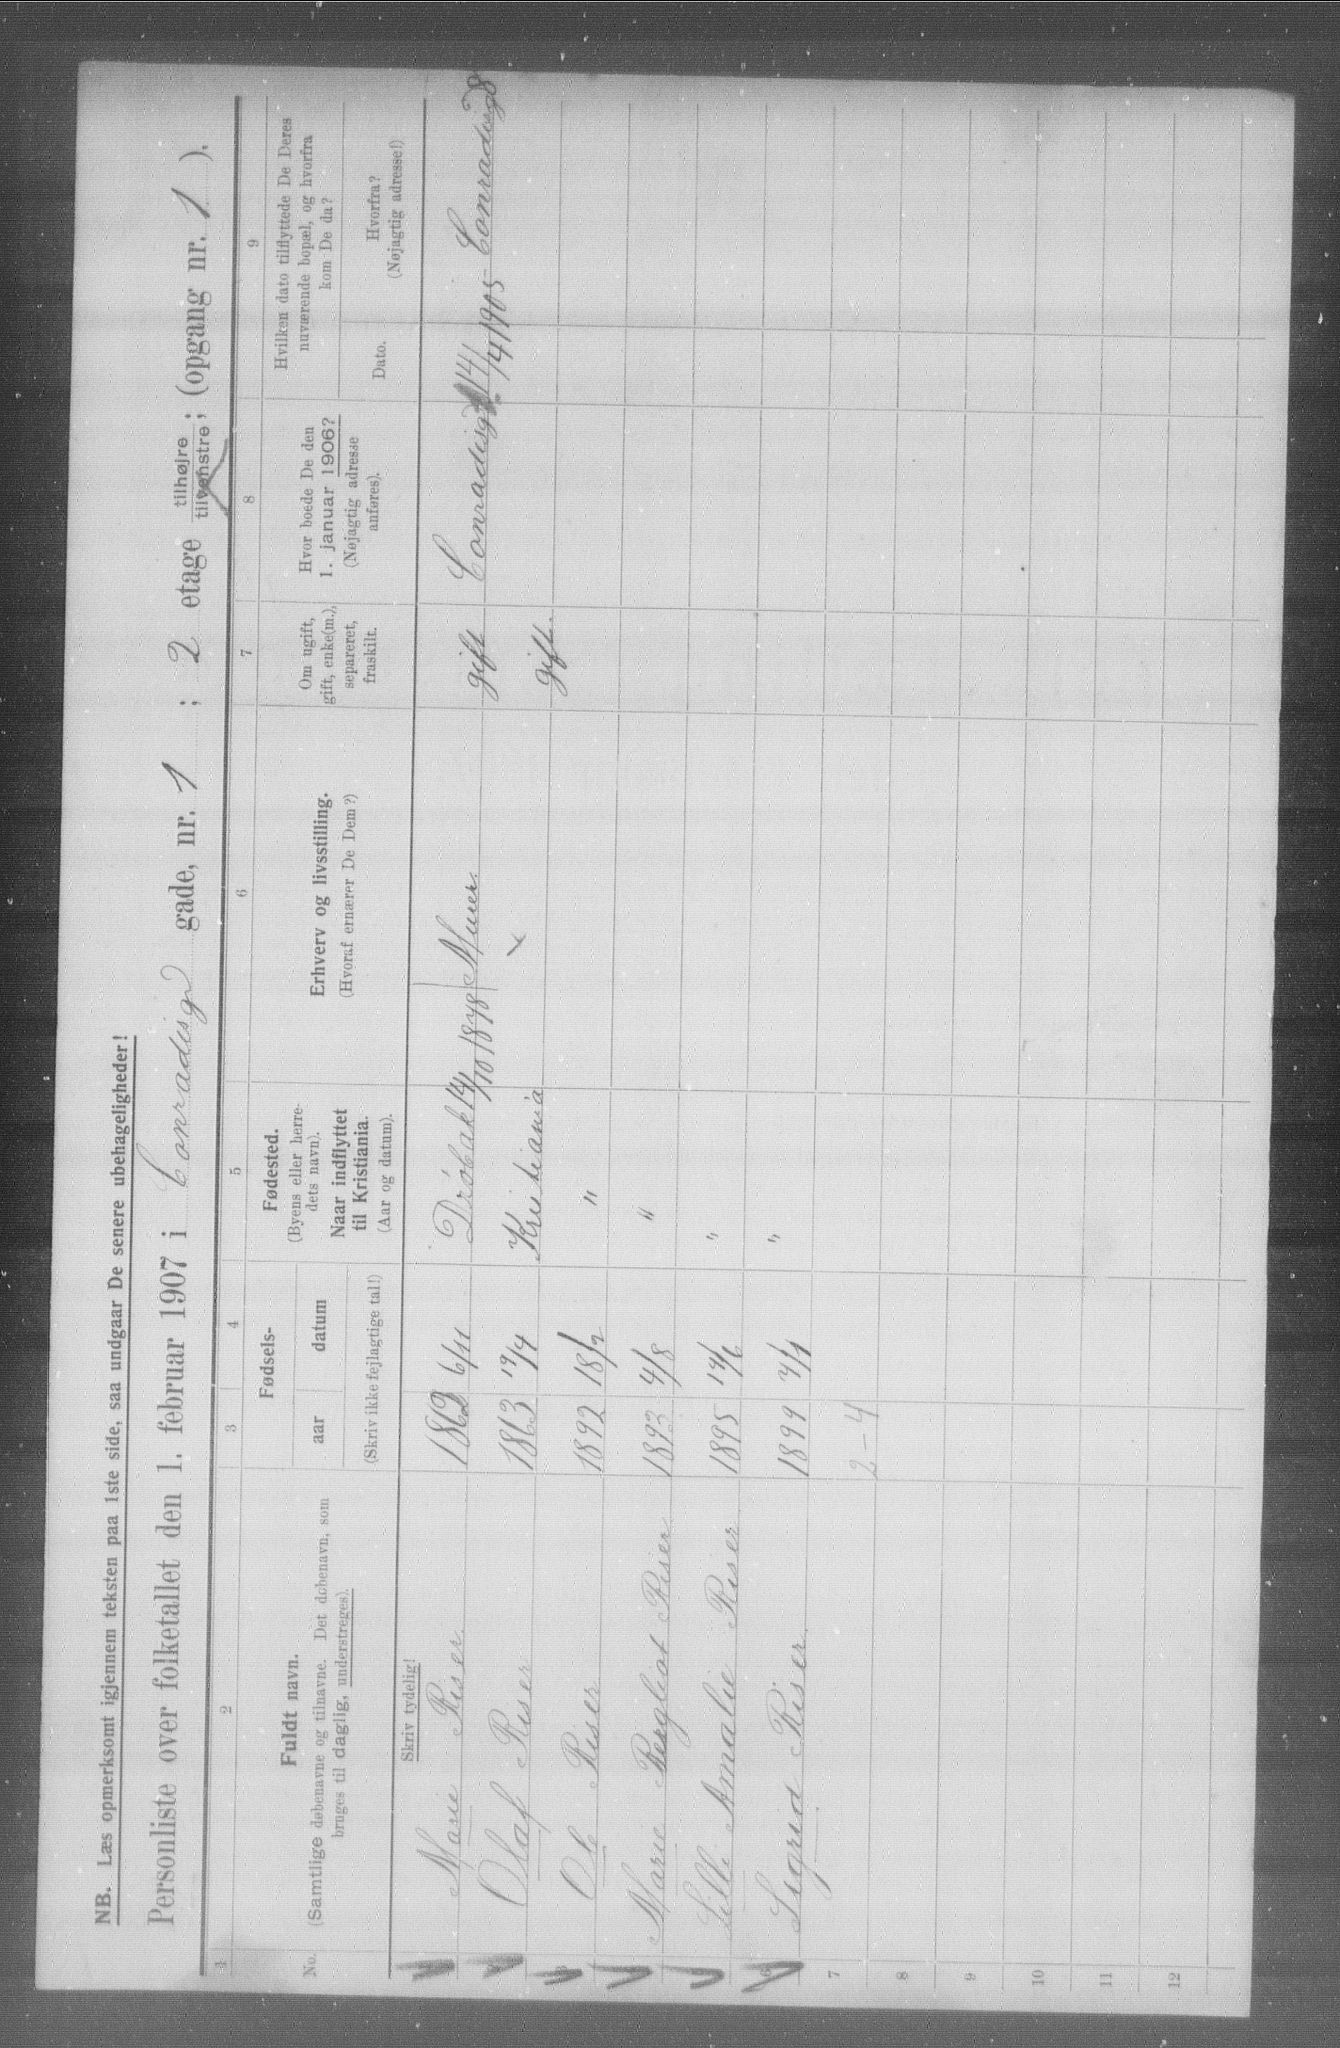 NB. Læs opmerksomt igjennem teksten paa 1ste side, saa undgaar De senere ubehageligheder!
Personliste over folketallet den 1. februar 1907 i Conradisg gade, nr. 1 ; 2 etage tilhøjre tilvenstre ; (opgang nr. 1 ).
1 2 3 4 5 6 7 8 9
No.
Fuldt navn.
(Samtlige døbenavne og tilnavne. Det døbenavn, som
bruges til daglig, understreges).
Fødsels-
aar datum
(Skriv ikke fejlagtige tal!)
Fødested.
(Byens eller herre-
dets navn).
Naar indflyttet
til Kristiania.
(Aar og datum).
Erhverv og livsstilling.
(Hvoraf ernærer De Dem?)
Om ugift,
gift, enke(m.),
separeret,
fraskilt.
Hvor boede De den
1. januar 1906?
(Nøjagtig adresse
anføres).
Hvilken dato tilflyttede De Deres
nuværende bopæl, og hvorfra
kom De da?
Dato.
Hvorfra?
(Nøjagtig adresse!)
Skriv tydelig!
Marie Riser. 1862 6/11 Drøbak 14/10 1878 Murer. gift Conradisgd 14/4 1905 Conradisgd 8
Olaf Riser 1863 19/4 Kristiania gift.
3 Ole Riser 1892 18/2 "
Marie Bergliot Riser 1893 4/8 "
Lilli Amalie Riser 1895 14/6 "
6 Sigrid Riser. 1899 4/4 "
7 2-4
8
9
10
11
12